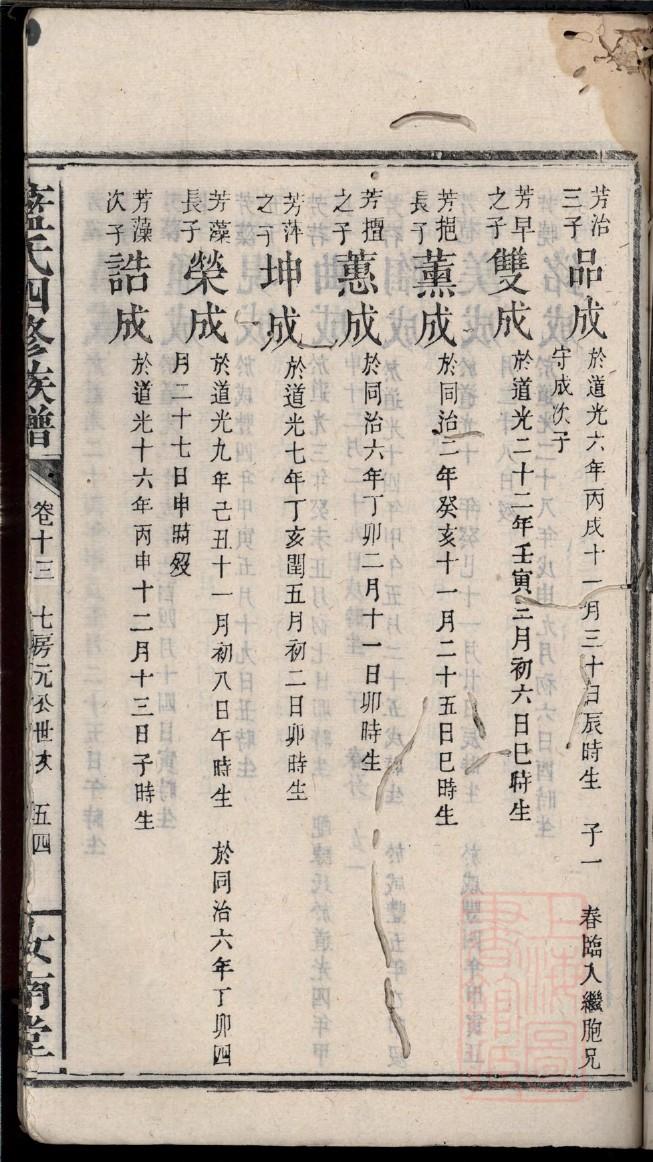 芳治三子 品成 於道光六年丙戌十一月三十日辰時生 子一 春臨入繼胞兄
守成次子
芳早之子 雙成 於道光二十二年壬寅三月初六日巳時生
芳挹長子 薰成 於同治二年癸亥十一月二十五日巳時生
芳擅之子 蕙成 於同治六年丁卯二月十一日卯時生
芳萍之子 坤成 於道光七年丁亥閏五月初二日卯時生
芳藻長子 榮成 於道光九年己丑十一月初八日午時生 於同治六年丁卯四
月二十七日申時歿
芳藻次子 誥成 於道光十六年丙申十二月十三日子時生
氏四修族譜 卷十三 七房元公世系 五四 汝南堂
上海圖書館藏